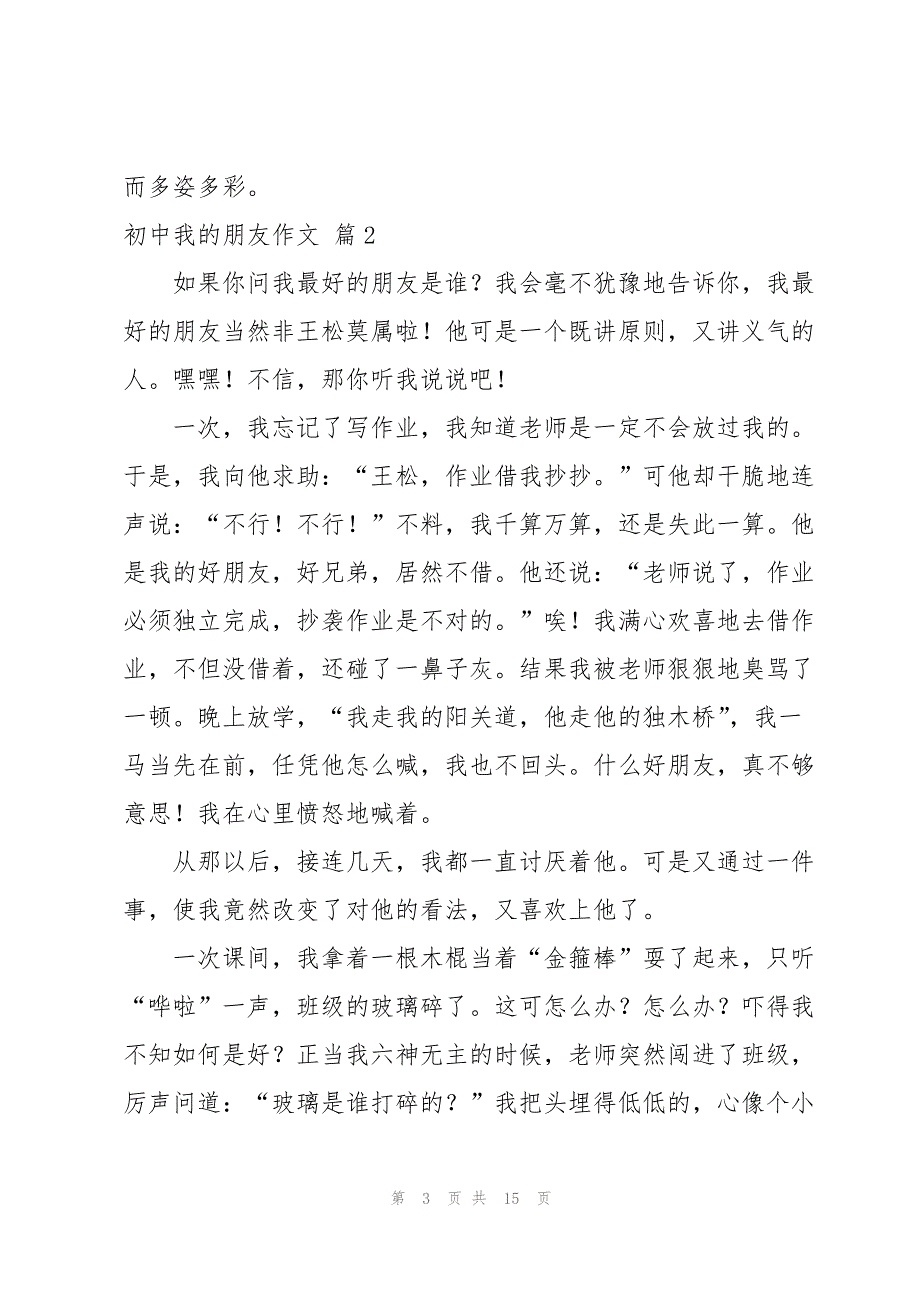 而多姿多彩。
初中我的朋友作文 篇2
如果你问我最好的朋友是谁？我会毫不犹豫地告诉你，我最
好的朋友当然非王松莫属啦！他可是一个既讲原则，又讲义气的
人。嘿嘿！不信，那你听我说说吧！
一次，我忘记了写作业，我知道老师是一定不会放过我的。
于是，我向他求助：“王松，作业借我抄抄。”可他却干脆地连
声说：“不行！不行！”不料，我千算万算，还是失此一算。他
是我的好朋友，好兄弟，居然不借。他还说：“老师说了，作业
必须独立完成，抄袭作业是不对的。”唉！我满心欢喜地去借作
业，不但没借着，还碰了一鼻子灰。结果我被老师狠狠地臭骂了
一顿。晚上放学，“我走我的阳关道，他走他的独木桥”，我一
马当先在前，任凭他怎么喊，我也不回头。什么好朋友，真不够
意思！我在心里愤怒地喊着。
从那以后，接连几天，我都一直讨厌着他。可是又通过一件
事，使我竟然改变了对他的看法，又喜欢上他了。
一次课间，我拿着一根木棍当着“金箍棒”耍了起来，只听
“哗啦”一声，班级的玻璃碎了。这可怎么办？怎么办？吓得我
不知如何是好？正当我六神无主的时候，老师突然闯进了班级，
厉声问道：“玻璃是谁打碎的？”我把头埋得低低的，心像个小
第 3 页 共 15 页